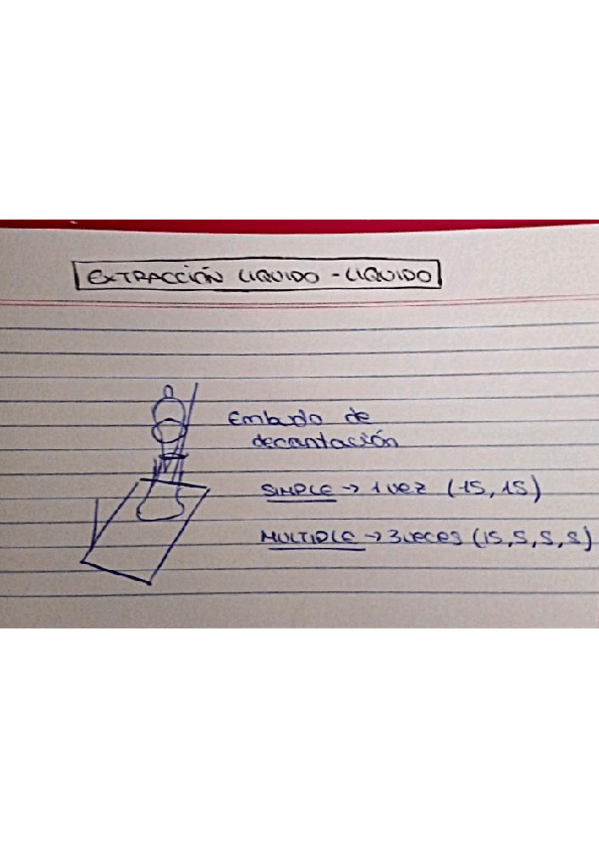 EXTRACCIÓN LIQUIDO - LIQUIDO
Embudo de
decantación
SIMPLE → 1 vez (15, 15)
MULTIPLE → 3 veces (15, 5, 5, 5)